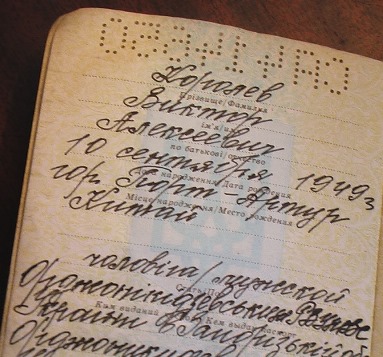 Королев
Прізвище/Фамилия
Виктор
ім'я/имя
Алексеевич
по батькові/отчество
10 сентября 1949
Дата народження/Дата рождения
гор. Порт-Артур
Місце народження/Место рождения
Китай
чоловіча/мужской
Орджонікідзевським РВ УМВС
України в Запорізькій
Ким виданий Кем выдан